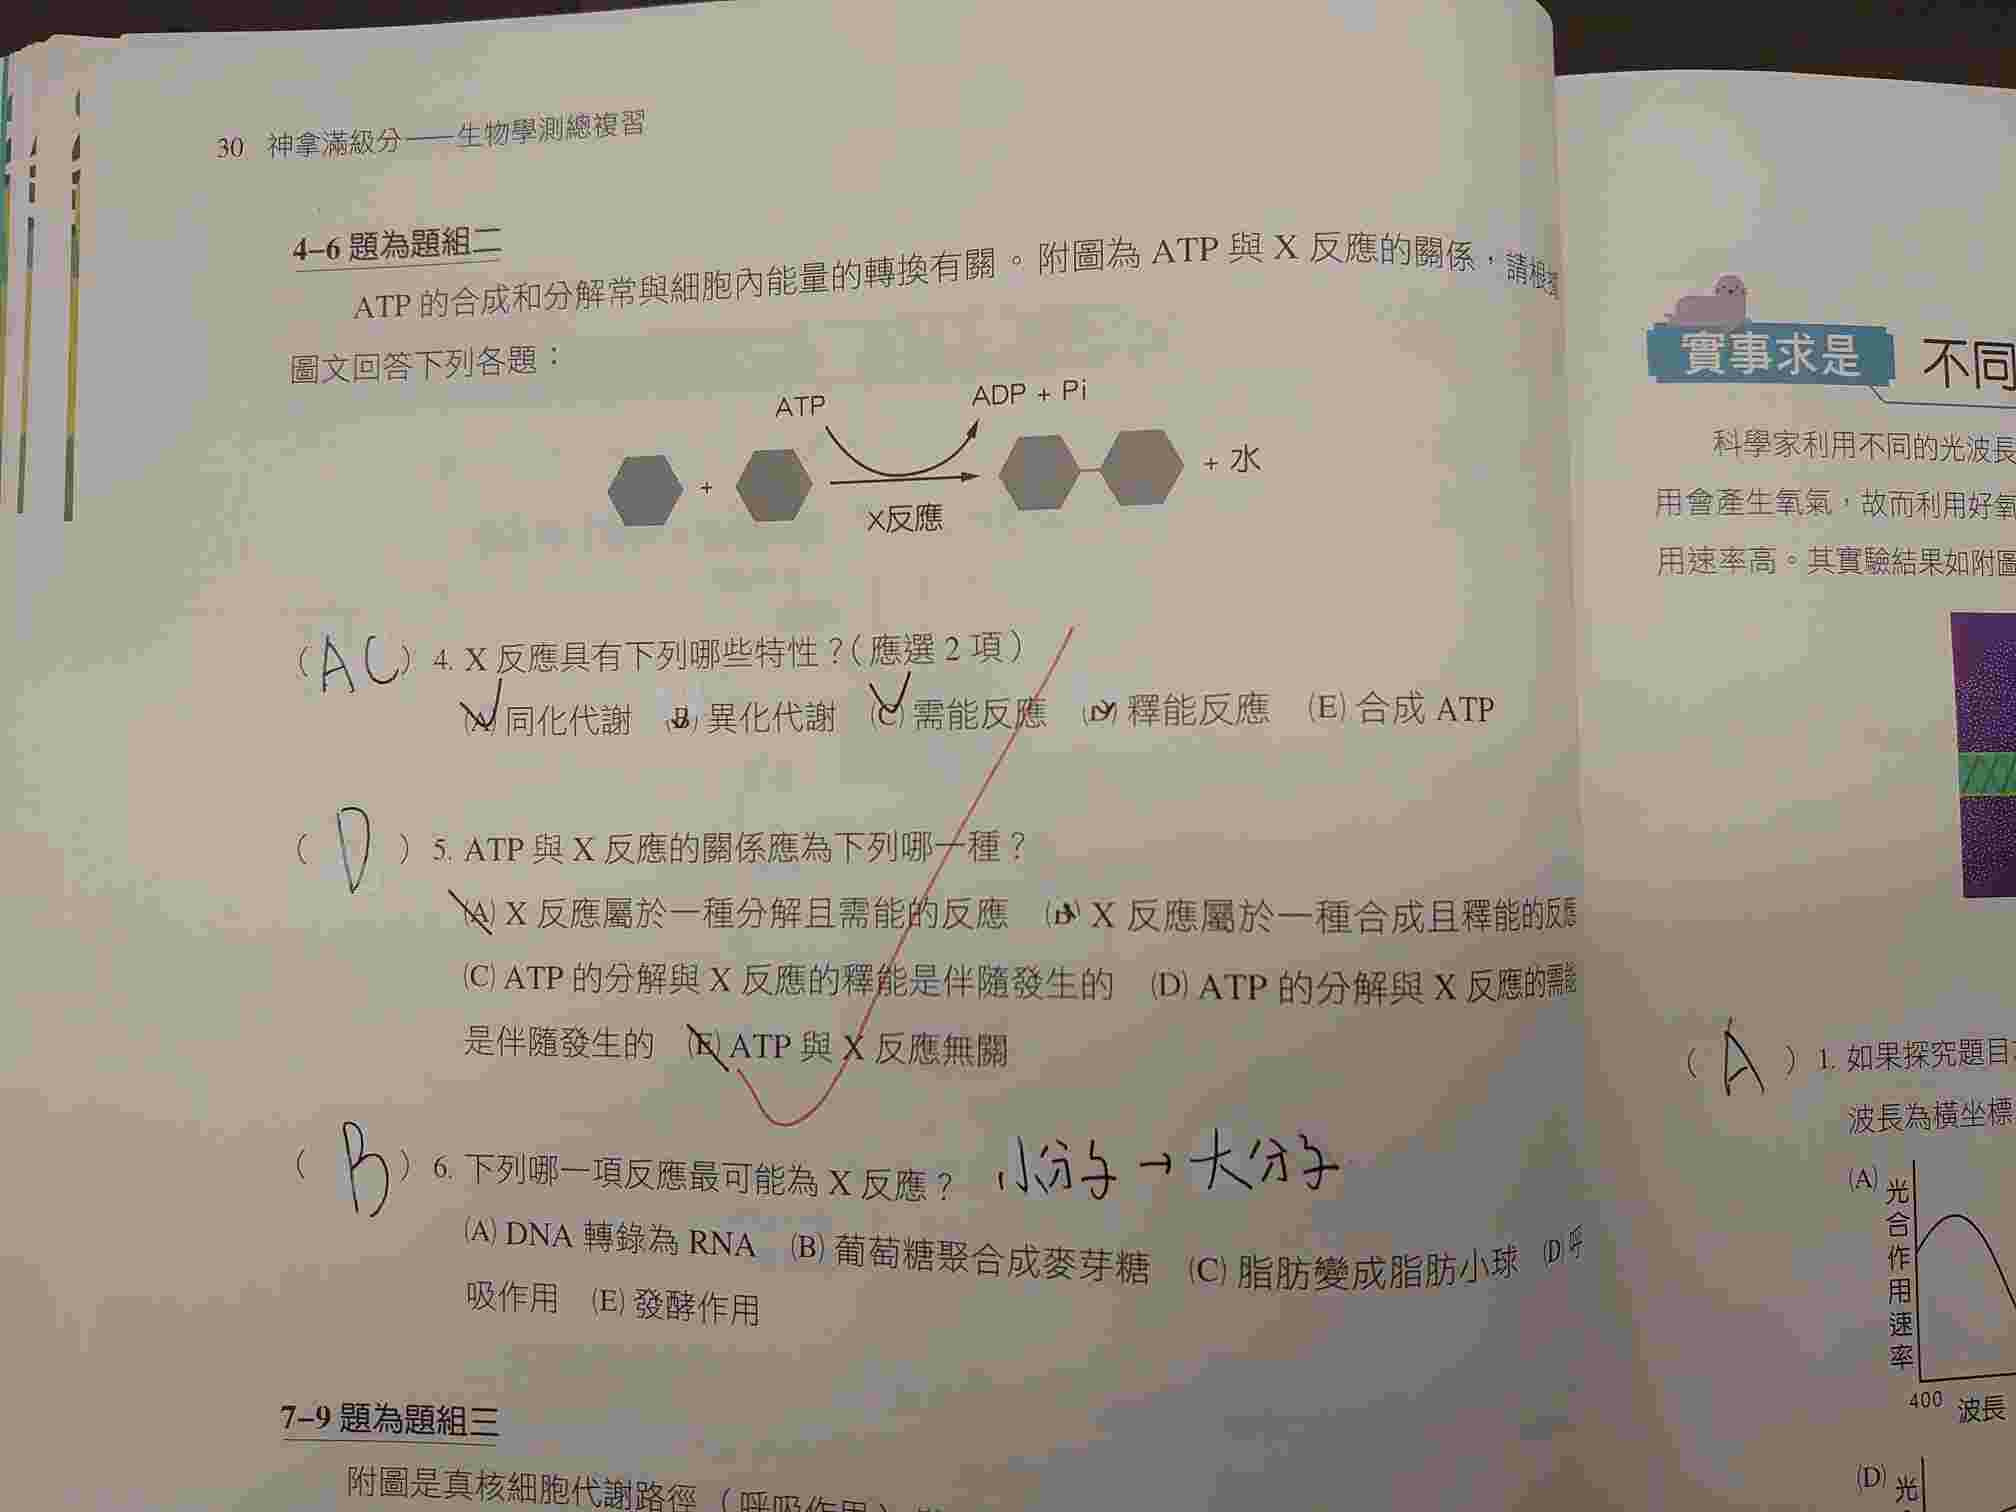 30 神拿滿級分——生物學測總複習
4–6 題為題組二
ATP 的合成和分解常與細胞內能量的轉換有關。附圖為 ATP 與 X 反應的關係，請根據
圖文回答下列各題：
ATP
ADP + Pi
+
+ 水
X反應
(AC) 4. X 反應具有下列哪些特性？（應選 2 項）
(A) 同化代謝 (B) 異化代謝 (C) 需能反應 (D) 釋能反應 (E) 合成 ATP
( D ) 5. ATP 與 X 反應的關係應為下列哪一種？
(A) X 反應屬於一種分解且需能的反應 (B) X 反應屬於一種合成且釋能的反應
(C) ATP 的分解與 X 反應的釋能是伴隨發生的 (D) ATP 的分解與 X 反應的需能
是伴隨發生的 (E) ATP 與 X 反應無關
( B ) 6. 下列哪一項反應最可能為 X 反應？ 小分子 → 大分子
(A) DNA 轉錄為 RNA (B) 葡萄糖聚合成麥芽糖 (C) 脂肪變成脂肪小球 (D) 呼
吸作用 (E) 發酵作用
7–9 題為題組三
附圖是真核細胞代謝路徑（呼吸作用）
實事求是 不同
科學家利用不同的光波長
用會產生氧氣，故而利用好氧
用速率高。其實驗結果如附圖
( A ) 1. 如果探究題目
波長為橫坐標
(A) 光合作用速率
400 波長
(D) 光